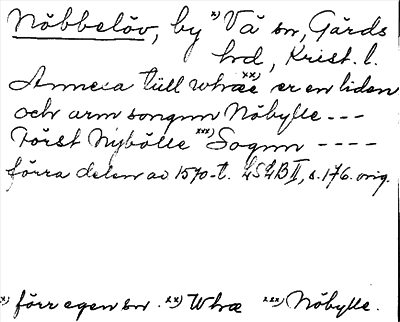 Nöbbelöv, by x) Vä sn, Gärds
hd, Krist. l.
Annexa till whæ xx) er en liden
och arm songnn Nöbylle ---
Först Nybölle xxx) Sognn ----
förra delen av 1570-t. LSLB II, s. 176. orig.
x) förr egen sn. xx) Whæ xxx) Nöbylle.